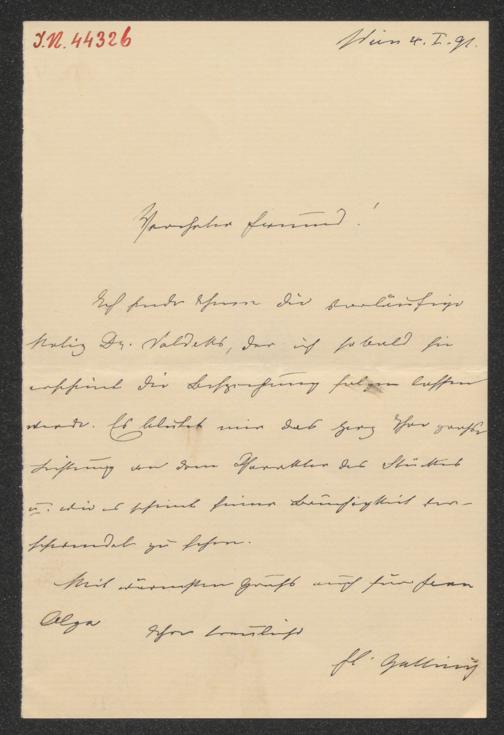 J.N. 44326
Wien 4. I. 91.
Verehrter Freund!
Ich sende Ihnen die vorläufige
Notiz Dr. Valdeks, der ich sobald sie
erscheint die Besprechung folgen lassen
werde. Es blutet mir das Herz Ihre große
Leistung an dem Charakter des Stückes
u. wie es scheint seiner verschwendet
zu sehen.
Mit wärmsten Gruß auch für Frau
Olga
Ihr